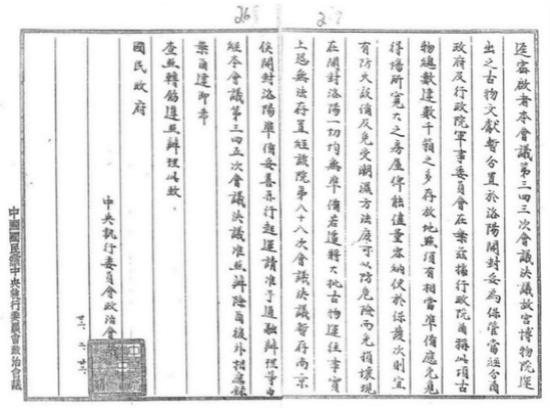 逕密啟者本會議第三四三次會議決議故宮博物院運
出之古物文獻暫分置於洛陽開封妥為保管當經分函
政府及行政院軍事委員會在案茲據行政院函稱以項古
物總數達數千箱之多存放地點須有相當準備應先覓
得場所寬大之房屋俾能儘量容納便於保護次則宜
有防火設備及免受潮濕方法庶可以防危險而免損壞現
在開封洛陽一切均無準備若遽轉大批古物運往事實
上恐無法存置經該院第八十八次會議決議暫存南京
俟開封洛陽準備妥善再行起運請准予通融辦理等由
經本會議第三四五次會議決議准照辦除函復外相應錄
案函達即希
查照轉飭遵照辦理以致
國民政府
中央執行委員會政治會
中國國民黨中央執行委員會政治會議